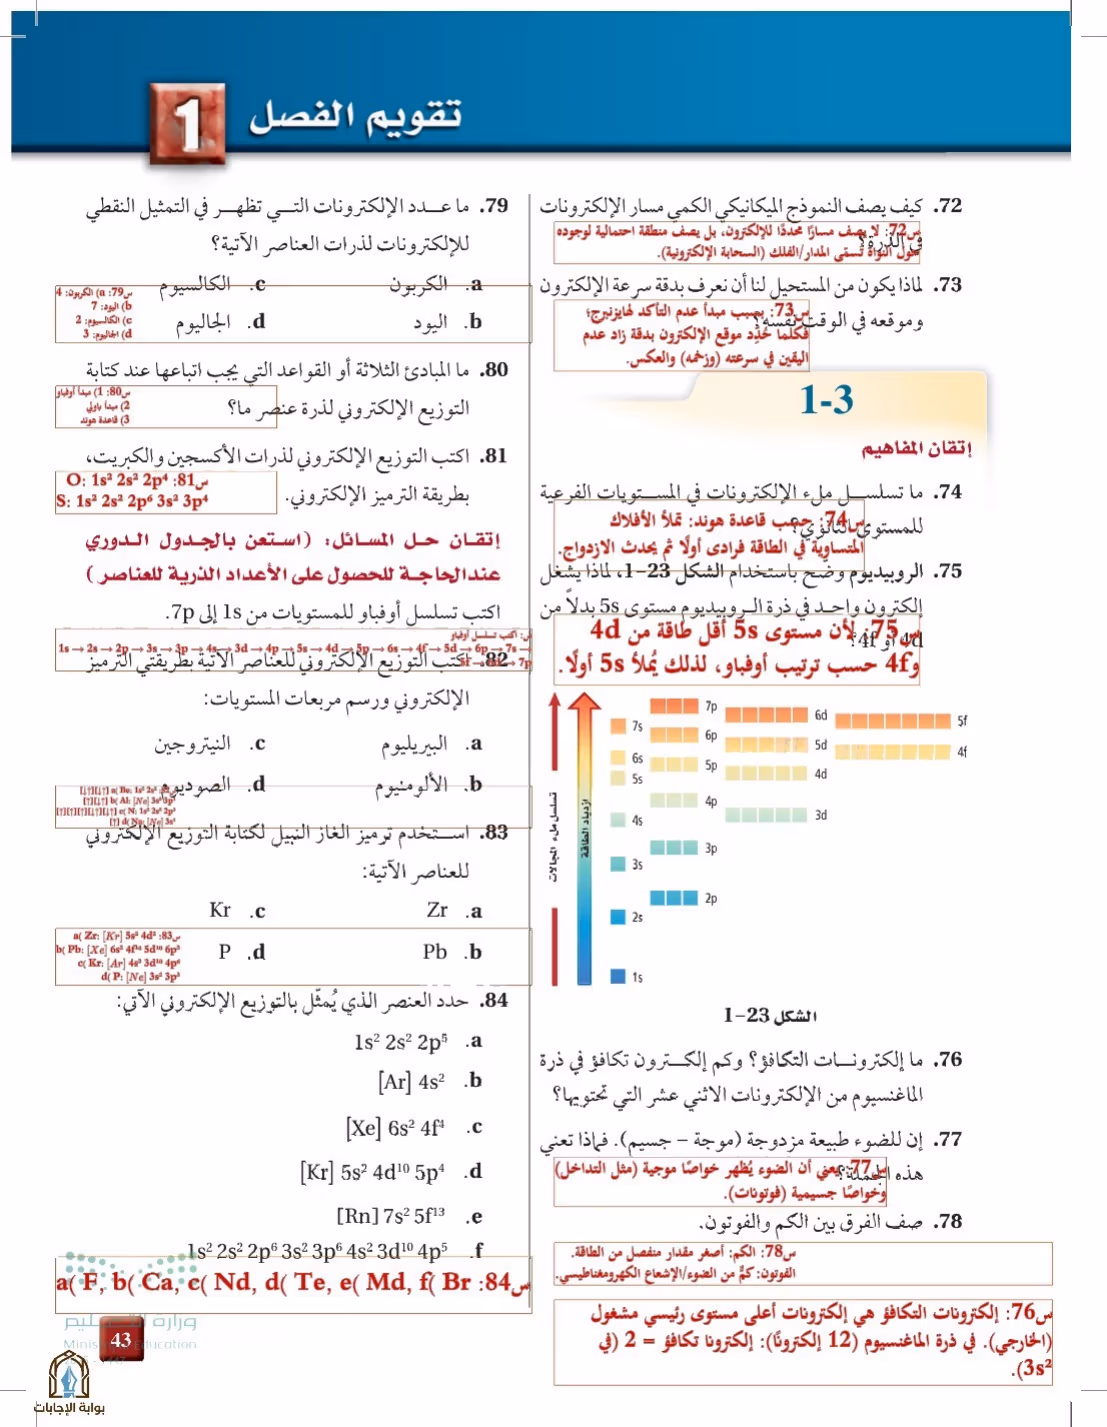 تقويم الفصل
1
72. كيف يصف النموذج الميكانيكي الكمي مسار الإلكترونات
في الذرة؟
س72: لا يصف مسارًا محددًا للإلكترون، بل يصف منطقة احتمالية لوجوده
حول النواة تُسمى المدار/الفلك (السحابة الإلكترونية).
73. لماذا يكون من المستحيل لنا أن نعرف بدقة سرعة الإلكترون
وموقعه في الوقت نفسه؟
س73: بسبب مبدأ عدم التأكد لهايزنبرج؛
فكلما حُدِّد موقع الإلكترون بدقة زاد عدم
اليقين في سرعته (وزخمه) والعكس.
1-3
إتقان المفاهيم
74. ما تسلسل ملء الإلكترونات في المستويات الفرعية
للمستوى الثانوي؟
س74: حسب قاعدة هوند: تملأ الأفلاك
المتساوية في الطاقة فرادى أولًا ثم يحدث الازدواج.
75. الروبيديوم وضح باستخدام الشكل 23-1، لماذا يشغل
إلكترون واحد في ذرة الروبيديوم مستوى 5s بدلاً من
4d أو 4f؟
س75: لأن مستوى 5s أقل طاقة من 4d
و4f حسب ترتيب أوفباو، لذلك يُملأ 5s أولًا.
تسلسل ملء المجالات
ازدياد الطاقة
7p
6d
5f
7s
6p
5d
4f
6s
5p
4d
5s
4p
3d
4s
3p
3s
2p
2s
1s
الشكل 23-1
76. ما إلكترونات التكافؤ؟ وكم إلكترون تكافؤ في ذرة
الماغنسيوم من الإلكترونات الاثني عشر التي تحتويها؟
77. إن للضوء طبيعة مزدوجة (موجة – جسيم). فماذا تعني
هذه الجملة؟
س77: يعني أن الضوء يُظهر خواصًا موجية (مثل التداخل)
وخواصًا جسيمية (فوتونات).
78. صف الفرق بين الكم والفوتون.
س78: الكم: أصغر مقدار منفصل من الطاقة.
الفوتون: كمٌّ من الضوء/الإشعاع الكهرومغناطيسي.
س76: إلكترونات التكافؤ هي إلكترونات أعلى مستوى رئيسي مشغول
(الخارجي). في ذرة الماغنسيوم (12 إلكترونًا): إلكترونا تكافؤ = 2 (في
3s²).
79. ما عدد الإلكترونات التي تظهر في التمثيل النقطي
للإلكترونات لذرات العناصر الآتية؟
a. الكربون c. الكالسيوم
b. اليود d. الجاليوم
س79: a) الكربون: 4
b) اليود: 7
c) الكالسيوم: 2
d) الجاليوم: 3
80. ما المبادئ الثلاثة أو القواعد التي يجب اتباعها عند كتابة
التوزيع الإلكتروني لذرة عنصر ما؟
س80: 1) مبدأ أوفباو
2) مبدأ باولي
3) قاعدة هوند
81. اكتب التوزيع الإلكتروني لذرات الأكسجين والكبريت،
بطريقة الترميز الإلكتروني.
س81: O: 1s² 2s² 2p⁴
S: 1s² 2s² 2p⁶ 3s² 3p⁴
إتقان حل المسائل: (استعن بالجدول الدوري
عندالحاجة للحصول على الأعداد الذرية للعناصر)
اكتب تسلسل أوفباو للمستويات من 1s إلى 7p.
س: اكتب تسلسل أوفباو
1s → 2s → 2p → 3s → 3p → 4s → 3d → 4p → 5s → 4d → 5p → 6s → 4f → 5d → 6p → 7s →
→ 7p
82. اكتب التوزيع الإلكتروني للعناصر الآتية بطريقتي الترميز
الإلكتروني ورسم مربعات المستويات:
a. البيريليوم c. النيتروجين
b. الألومنيوم d. الصوديوم
83. استخدم ترميز الغاز النبيل لكتابة التوزيع الإلكتروني
للعناصر الآتية:
a. Zr c. Kr
b. Pb d. P
س83: a( Zr: [Kr] 5s² 4d²
b( Pb: [Xe] 6s² 4f¹⁴ 5d¹⁰ 6p²
c( Kr: [Ar] 4s² 3d¹⁰ 4p⁶
d( P: [Ne] 3s² 3p³
84. حدد العنصر الذي يُمثّل بالتوزيع الإلكتروني الآتي:
a. 1s² 2s² 2p⁵
b. [Ar] 4s²
c. [Xe] 6s² 4f⁴
d. [Kr] 5s² 4d¹⁰ 5p⁴
e. [Rn] 7s² 5f¹³
f. 1s² 2s² 2p⁶ 3s² 3p⁶ 4s² 3d¹⁰ 4p⁵
س84: a( F, b( Ca, c( Nd, d( Te, e( Md, f( Br
وزارة التعليم
Ministry of Education
43
بوابة الإجابات